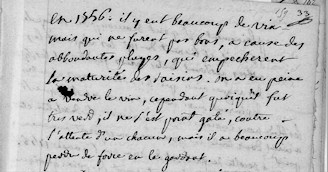 33
En 1756. il y eut beaucoup de vin
mais qui ne furent pas bons, a cause des
abbondantes pluyes, qui empecherent
la maturité des raisins. on a eu peine
a vendre le vin, cependant quoiqu'il fut
tres verd, il ne s'est point gaté, contre
l'attente d'un chacun, mais il a beaucoup
perdu de force en le gardant.